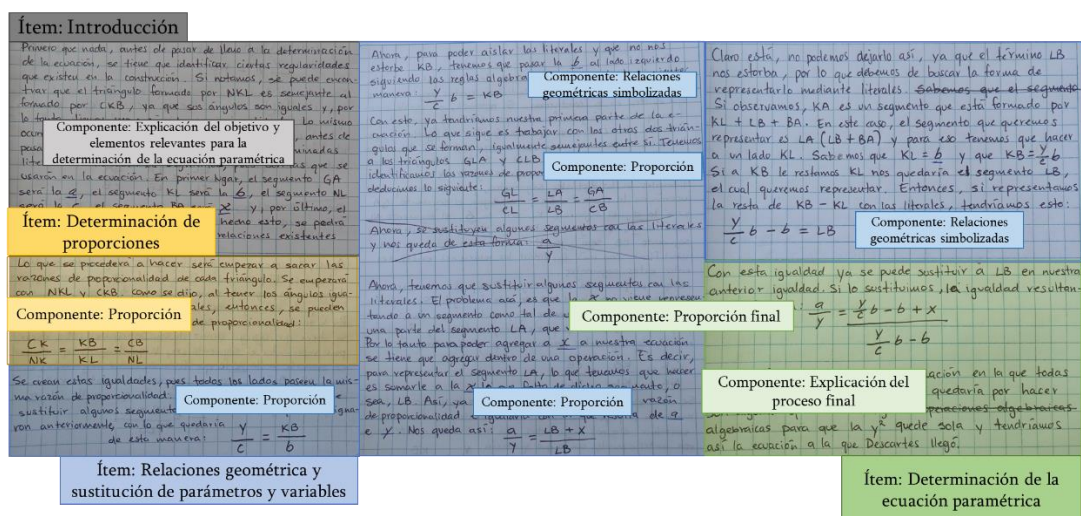 Ítem: Introducción
Primero que nada, antes de pasar de lleno a la determinación
de la ecuación, se tiene que identificar ciertas regularidades
que existen en la construcción. Si notamos, se puede encon-
trar que el triángulo formado por NKL es semejante al
formado por CKB, ya que sus ángulos son iguales y, por
Lo mismo
Componente: Explicación del objetivo y
elementos relevantes para la
determinación de la ecuación paramétrica
antes de
que se
usarán en la ecuación. En primer lugar, el segmento GA
será la a, el segmento KL será la b, el segmento NL
y, por último, el
hecho esto, se podrá
relaciones existentes
Ítem: Determinación de
proporciones
Lo que se procederá a hacer será empezar a sacar las
razones de proporcionalidad de cada triángulo. Se empezará
con NKL y CKB. Como se dijo, al tener los ángulos igua-
entonces, se pueden
de proporcionalidad:
Componente: Proporción
CK/NK = KB/KL = CB/NL
Se crean estas igualdades, pues todos los lados poseen la mis-
ma razón de proporcionalidad.
Componente: Proporción
sustituir algunos segmentos
ron anteriormente, con lo que quedaría
de esta manera: y/c = KB/b
Ítem: Relaciones geométrica y
sustitución de parámetros y variables
Ahora, para poder aislar las literales y que no nos
estorbe KB, tenemos que pasar la b al lado izquierdo
siguiendo las reglas
manera: y/c b = KB
Componente: Relaciones
geométricas simbolizadas
Con esto, ya tendríamos nuestra primera parte de la e-
cuación. Lo que sigue es trabajar con los otros dos trián-
gulos que se forman, igualmente semejantes entre sí. Tenemos
a los triángulos GLA y CLB
identificamos las razones de
deducimos lo siguiente:
Componente: Proporción
GL/CL = LA/LB = GA/CB
Ahora, se sustituyen algunos segmentos con las literales
y nos queda de esta forma: a/y
Ahora, tenemos que sustituir algunos segmentos con las
literales. El problema acá, es que la x no viene represen-
tando a un segmento como tal de
una parte del segmento LA, que
Componente: Proporción final
Por lo tanto para poder agregar a x a nuestra ecuación
se tiene que agregar dentro de una operación. Es decir,
para representar el segmento LA, lo que tenemos que hacer
es sumarle a la x lo que falta de dicho segmento, o
sea, LB. Así, ya
razón
Componente: Proporción
de proporcionalidad
de a
e y. Nos queda así: a/y = LB + x/LB
Claro está, no podemos dejarlo así, ya que el término LB
nos estorba, por lo que debemos de buscar la forma de
representarlo mediante literales. Sabemos que el segmento
Si observamos, KA es un segmento que está formado por
KL + LB + BA. En este caso, el segmento que queremos
representar es LA (LB + BA) y para eso tenemos que hacer
a un lado KL. Sabemos que KL = b y que KB = y/c b
Si a KB le restamos KL nos quedaría el segmento LB,
el cual queremos representar. Entonces, si representamos
la resta de KB - KL con las literales, tendríamos esto:
y/c b - b = LB
Componente: Relaciones
geométricas simbolizadas
Con esta igualdad ya se puede sustituir a LB en nuestra
anterior igualdad. Si lo sustituimos, la igualdad resultan-
a/y = y/c b - b + x / y/c b - b
Componente: Explicación del
proceso final
en la que todas
quedaría por hacer
operaciones algebraicas
algebraicas para que la y² quede sola y tendríamos
así la ecuación a la que Descartes llegó.
Ítem: Determinación de la
ecuación paramétrica